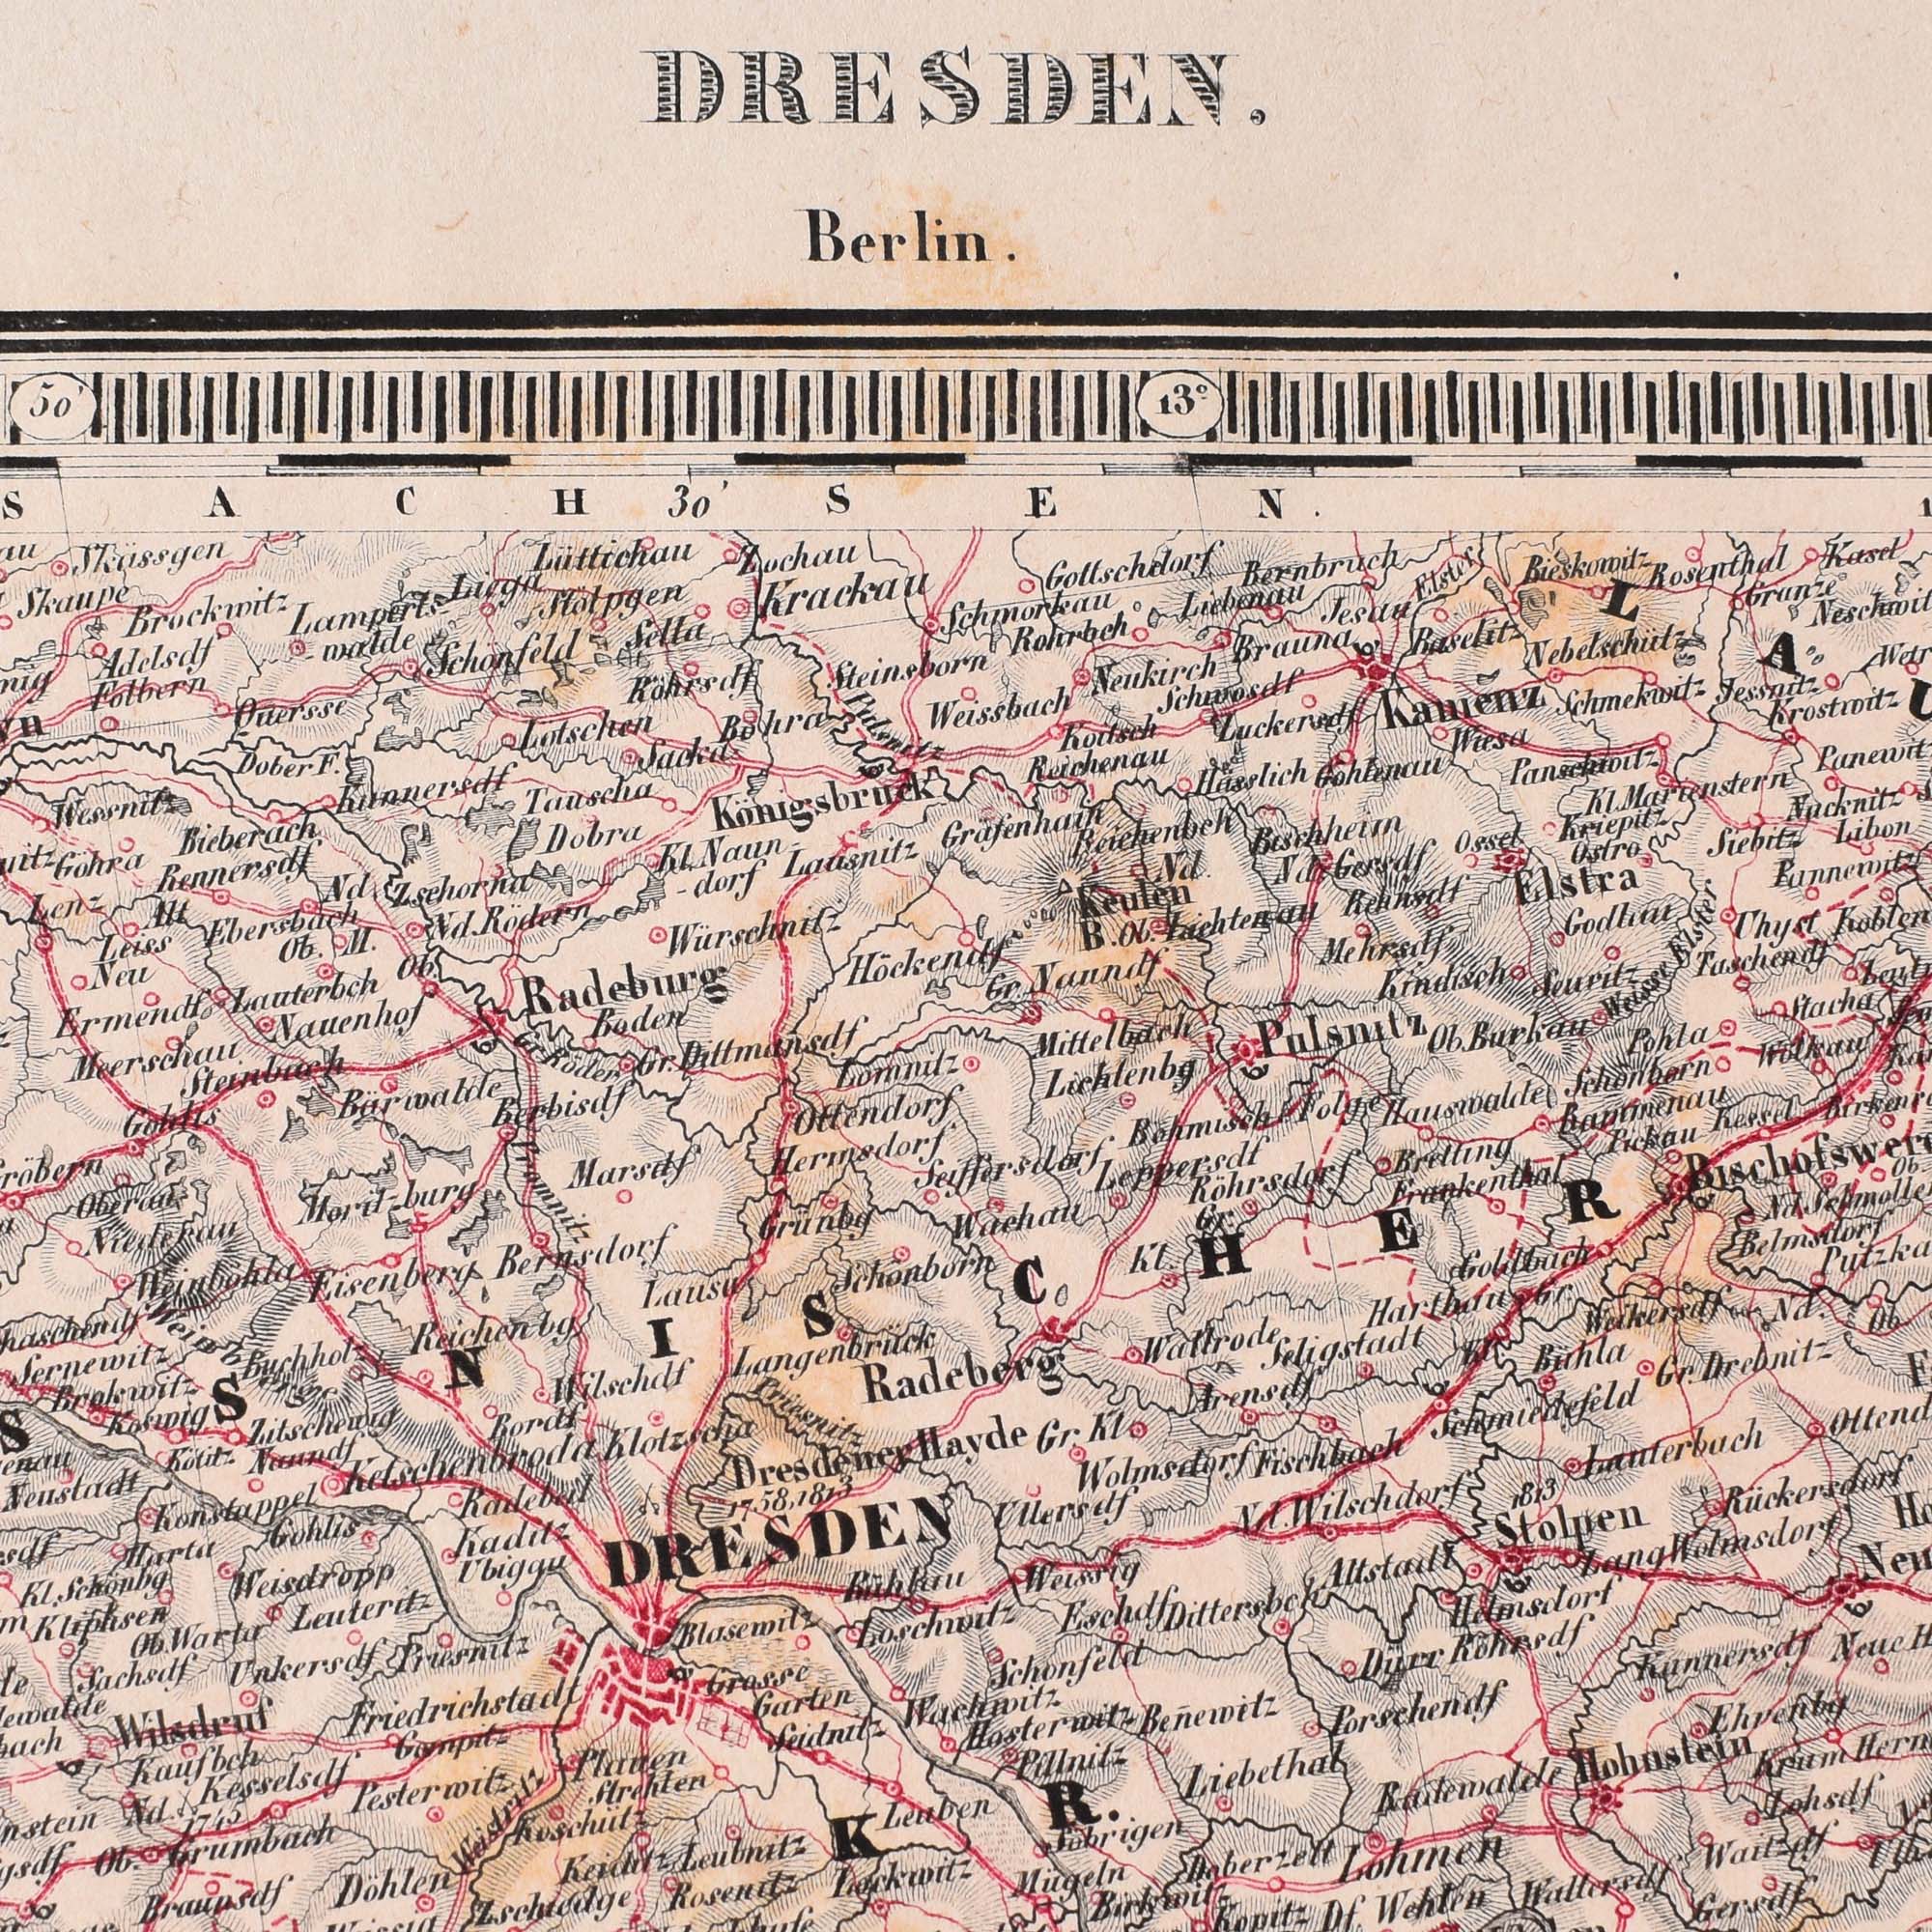 DRESDEN.
Berlin.
50'
13°
S A C H 30' S E N.
Skässgen
Lüttichau
Zochau
Gottschdorf
Bernbruch
Elster
Bieskowitz
Rosenthal
Kasel
Skaupe
Brockwitz
Lamperts-
-walde
Liega
Stölpgen
Krackau
Schmorkau
Liebenau
Jesau
L
Granze
Adelsdf
Schönfeld
Sella
Rohrbch
Brauna
Baselitz
Nebelschütz
A
Folbern
Quersse
Röhrsdf
Steinsborn
Neukirch
Schwosdf
Kamenz
Schmekwitz
Jessnitz
Krostwitz
U
Lötschen
Böhra
Pulsnitz
Weissbach
Koitsch
Luckersdf
Wiesa
Dober F.
Sacka
Reichenau
Hässlich
Gohlenau
Panschwitz
Wessnitz
Kunnersdf
Tauscha
Königsbruck
Kl. Marienstern
Nucknitz
Bieberach
Dobra
Gräfenhain
Reichenbch
Bischheim
Ossel
Kriepitz
Siebitz
Libon
Göhra
Rennersdf
Kl. Naun-
-dorf
Lausnitz
Nd.
Nd. Gersdf
Ostro
Pannewitz
Lenz
Alt
Nd
Zschorna
Keulen
B.
Rehnsdf
Elstra
Leiss
Ebersbach
Nd. Rödern
Würschnitz
Ob. Lichtenau
Godlau
Uhyst
Neu
Ob. M.
Ob.
Höckendf
Gr. Naundf
Mehrsdf
Weisse Elster
Taschendf
Ermendf
Lauterbch
Radeburg
Kindisch
Stacha
Nauenhof
Boden
Mittelbach
Pulsnitz
Ob. Burkau
Pohla
Meerschau
Gr. Röden
Gr. Dittmansdf
Lomnitz
Lichtenbg
Wölkau
Steinbach
Bärwalde
Berbisdf
Ottendorf
Folge
Hauswalde
Schönborn
Gohlis
Hermsdorf
Böhmisch
Bammenau
Kessel
Pickau
Marsdf
Promnitz
Seiffersdorf
Leppersdf
Bretting
Bischofswerd
Moritz-burg
Röhrsdorf
Frankenthal
Oberau
Grünbg
Wachau
Gr.
Niederau
Bernsdorf
Kl.
H E R
Belmsdorf
Weinböhla
Eisenberg
Lausa
Schönborn
C
Goldbach
Putzka
Weinberge
Reichenbg
S
Harthau
Gr.
Weikersdf
Nd.
Ob.
Buchholz
I
Langenbrück
Wallrode
Seligstadt
Kl.
Bühla
Gr. Drebnitz
N
Wilschdf
Radeberg
S
Koswig
Zitschewig
Priesnitz
Arensdf
Schmiedefeld
Kötitz
Naundf
Bordf
Klotzscha
Dresdener Hayde
Gr. Kl.
Lauterbach
Neustadt
Ketschenbroda
1758.1813
Wolmsdorf
Fischbach
Rückersdorf
Konstappel
Radebeul
DRESDEN
Ullersdf
Nd. Wilschdorf
1813
Stolpen
Gohlis
Kaditz
Lang Wolmsdorf
Harta
Weisdropp
Ubigau
Bühlau
Weissig
Altstadt
Neu
Kl. Schönbg
Leuteritz
Blasewitz
Loschwitz
Eschdf
Dittersbch
Helmsdorf
Kliphsen
Ob. Warta
Sachsdf
Unkersdf
Priesnitz
Grosse
Garten
Schönfeld
Dürr Röhrsdf
Kunnersdf
Wilsdruf
Friedrichstadt
Wachwitz
Seidnitz
Hosterwitz
Benewitz
Porschendf
Ehrenbg
Kaufbch
Gompitz
Plauen
Pillnitz
Hohnstein
Kesselsdf
Pesterwitz
Strehlen
Liebethal
Radewalde
Krum Herm
Nd.
1745
Weistritz
Koschütz
Leuben
K R.
Lohsdf
Ob.
Grumbach
Söbrigen
Waitzdf
Keiditz
Leubnitz
Lockwitz
Mügeln
Daberzeit
Lohmen
Braunsdf
Döhlen
Zschiedge
Rosenitz
Birkwitz
Kopitz
Df Wehlen
Waltersdf
Gersdf